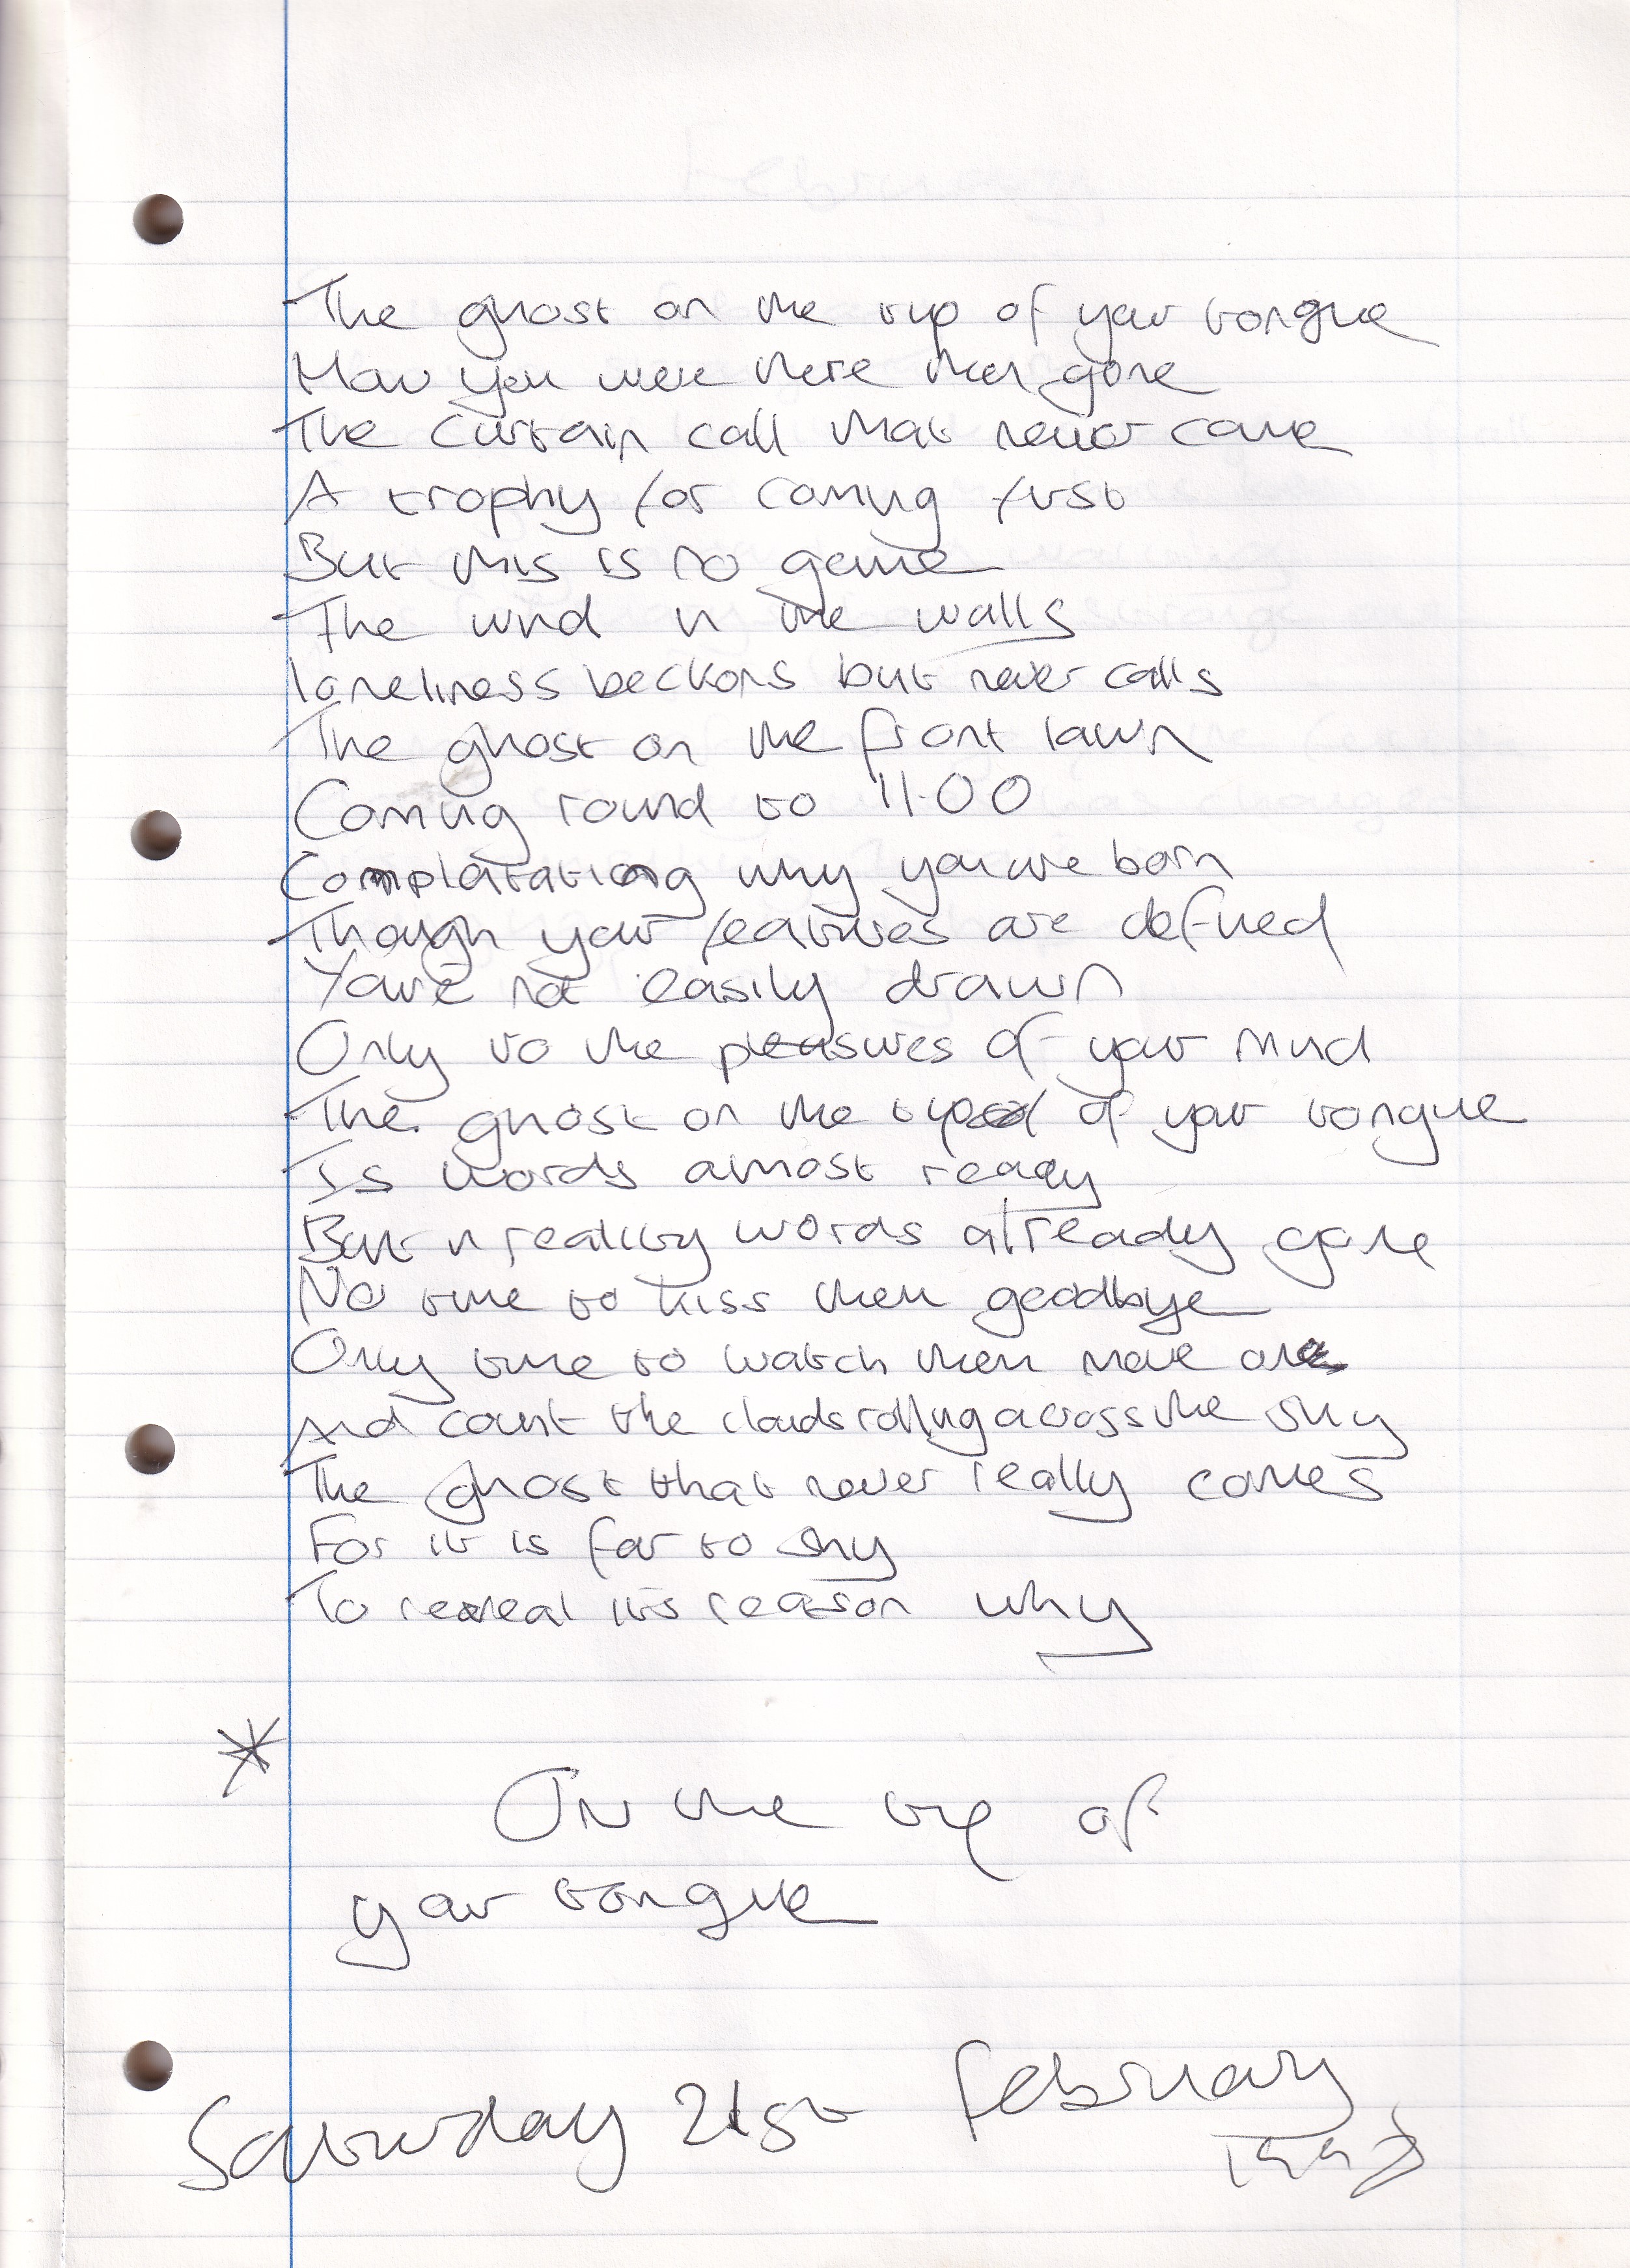 The ghost on the tip of your tongue
How you were there then gone
The curtain call that never came
A trophy for coming first
But this is no game
The wind in the walls
loneliness beckons but never calls
The ghost on the front lawn
Coming round to 11.00
Complatating why you were born
Though your features are defined
You're not easily drawn
Only to the pleasures of your mind
The ghost on the tip of your tongue
Is words almost ready
But in reality words already gone
No time to kiss them goodbye
Only time to watch them move on
And count the clouds rolling across the sky
The ghost that never really comes
For it is far to shy
To reveal its reason why
*
On the tip of
your tongue
Saturday 21st February